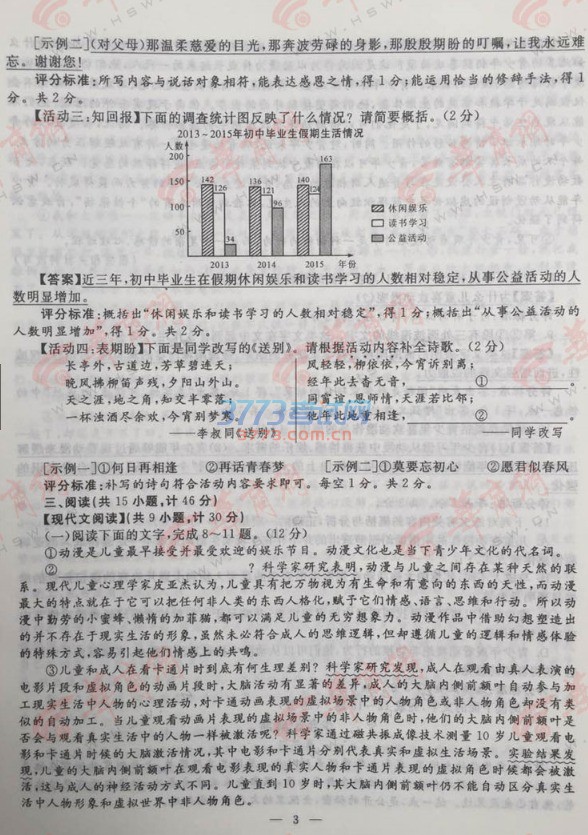 [示例二](对父母)那温柔慈爱的目光,那奔波劳碌的身影,那殷殷期盼的叮嘱,让我永远难
忘。谢谢您!
评分标准:所写内容与说话对象相符,能表达感恩之情,得1分;能运用恰当的修辞手法,得1
分。共2分。
【活动三:知回报】下面的调查统计图反映了什么情况?请简要概括。(2分)
2013~2015年初中毕业生假期生活情况
人数
200
150
100
50
142
126
34
136
121
96
140
124
163
2013 2014 2015 年份
休闲娱乐
读书学习
公益活动
【答案】近三年,初中毕业生在假期休闲娱乐和读书学习的人数相对稳定,从事公益活动的人
数明显增加。
评分标准:概括出“休闲娱乐和读书学习的人数相对稳定”,得1分;概括出“从事公益活动的
人数明显增加”,得1分。共2分。
【活动四:表期盼】下面是同学改写的《送别》。请根据活动内容补全诗歌。(2分)
长亭外,古道边,芳草碧连天;
晚风拂柳笛声残,夕阳山外山。
天之涯,地之角,知交半零落;
一杯浊酒尽余欢,今宵别梦寒。
——李叔同《送别》
风轻轻,柳依依,今宵诉别离;
经年此去杳无音,①。
同窗谊,恩师情,天涯若比邻;
他年此地重相逢,②。
——同学改写
3773考试网
3773.com.cn
[示例一]①何日再相逢 ②再话青春梦 [示例二]①莫要忘初心 ②愿君似春风
评分标准:补写的诗句符合活动内容要求即可。每空1分。共2分。
三、阅读(共15小题,计46分)
【现代文阅读】(共9小题,计30分)
(一)阅读下面的文字,完成8~11题。(12分)
①动漫是儿童最早接受并最受欢迎的娱乐节目。动漫文化也是当下青少年文化的代名词。
②?科学家研究表明,动漫与儿童之间存在某种天然的联
系。现代儿童心理学家皮亚杰认为,儿童具有把万物视为有生命和有意向的东西的天性,而动漫
最大的特点就在于它可以把任何非人类的东西人格化,赋予它们情感、语言、思维和行动。所以动
漫中勤劳的小蜜蜂、懒惰的加菲猫,都可以满足儿童的无穷想象力。动漫作品中借助幻想塑造出
的并不存在于现实生活的形象,虽然未必符合成人的思维逻辑,但却遵循儿童的逻辑和情感体验
的特殊方式,容易引起他们情感上的共鸣。
③儿童和成人在看卡通片时到底有何生理差别?科学家研究发现,成人在观看由真人表演的
电影片段和虚拟角色的动画片段时,大脑活动有显著的差异,成人的大脑内侧前额叶自动参与加
工现实生活中人物的心理活动,对卡通动画表现的虚拟场景中的人物角色或非人物角色却没有类
似的自动加工。当儿童观看动画片表现的虚拟场景中的非人物角色时,他们的大脑内侧前额叶是
否会与观看真实生活中的人物一样被激活呢?科学家通过磁共振成像技术测量10岁儿童观看电
影和卡通片时候的大脑激活情况,其中电影和卡通片分别代表真实和虚拟生活场景。实验结果发
现,儿童的大脑内侧前额叶在观看电影表现的真实人物和卡通片表现的虚拟角色时候都会被激
活,这与成人的神经活动方式不同。儿童直到10岁时,其大脑内侧前额叶仍不能自动区分真实生
活中人物形象和虚拟世界中非人物角色。
— 3 —